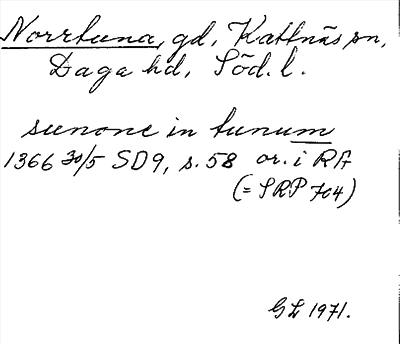 Norrtuna, gd, Kattnäs sn,
Daga hd, Söd. l.
sunone in tunum
1366 30/5 SD9, s. 58 or. i RA
(= SRP 704)
GL 1971.